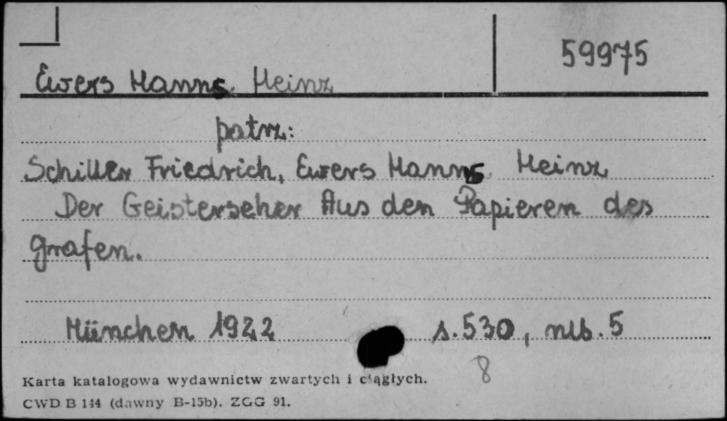 59975
Ewers Hanns Heinz
patrz:
Schiller Friedrich, Ewers Hanns Heinz
Der Geisterseher Aus den Papieren des
Grafen.
München 1922 s.530, nlb.5
8
Karta katalogowa wydawnictw zwartych i ciągłych.
CWD B 144 (dawny B-15b). ZGG 91.